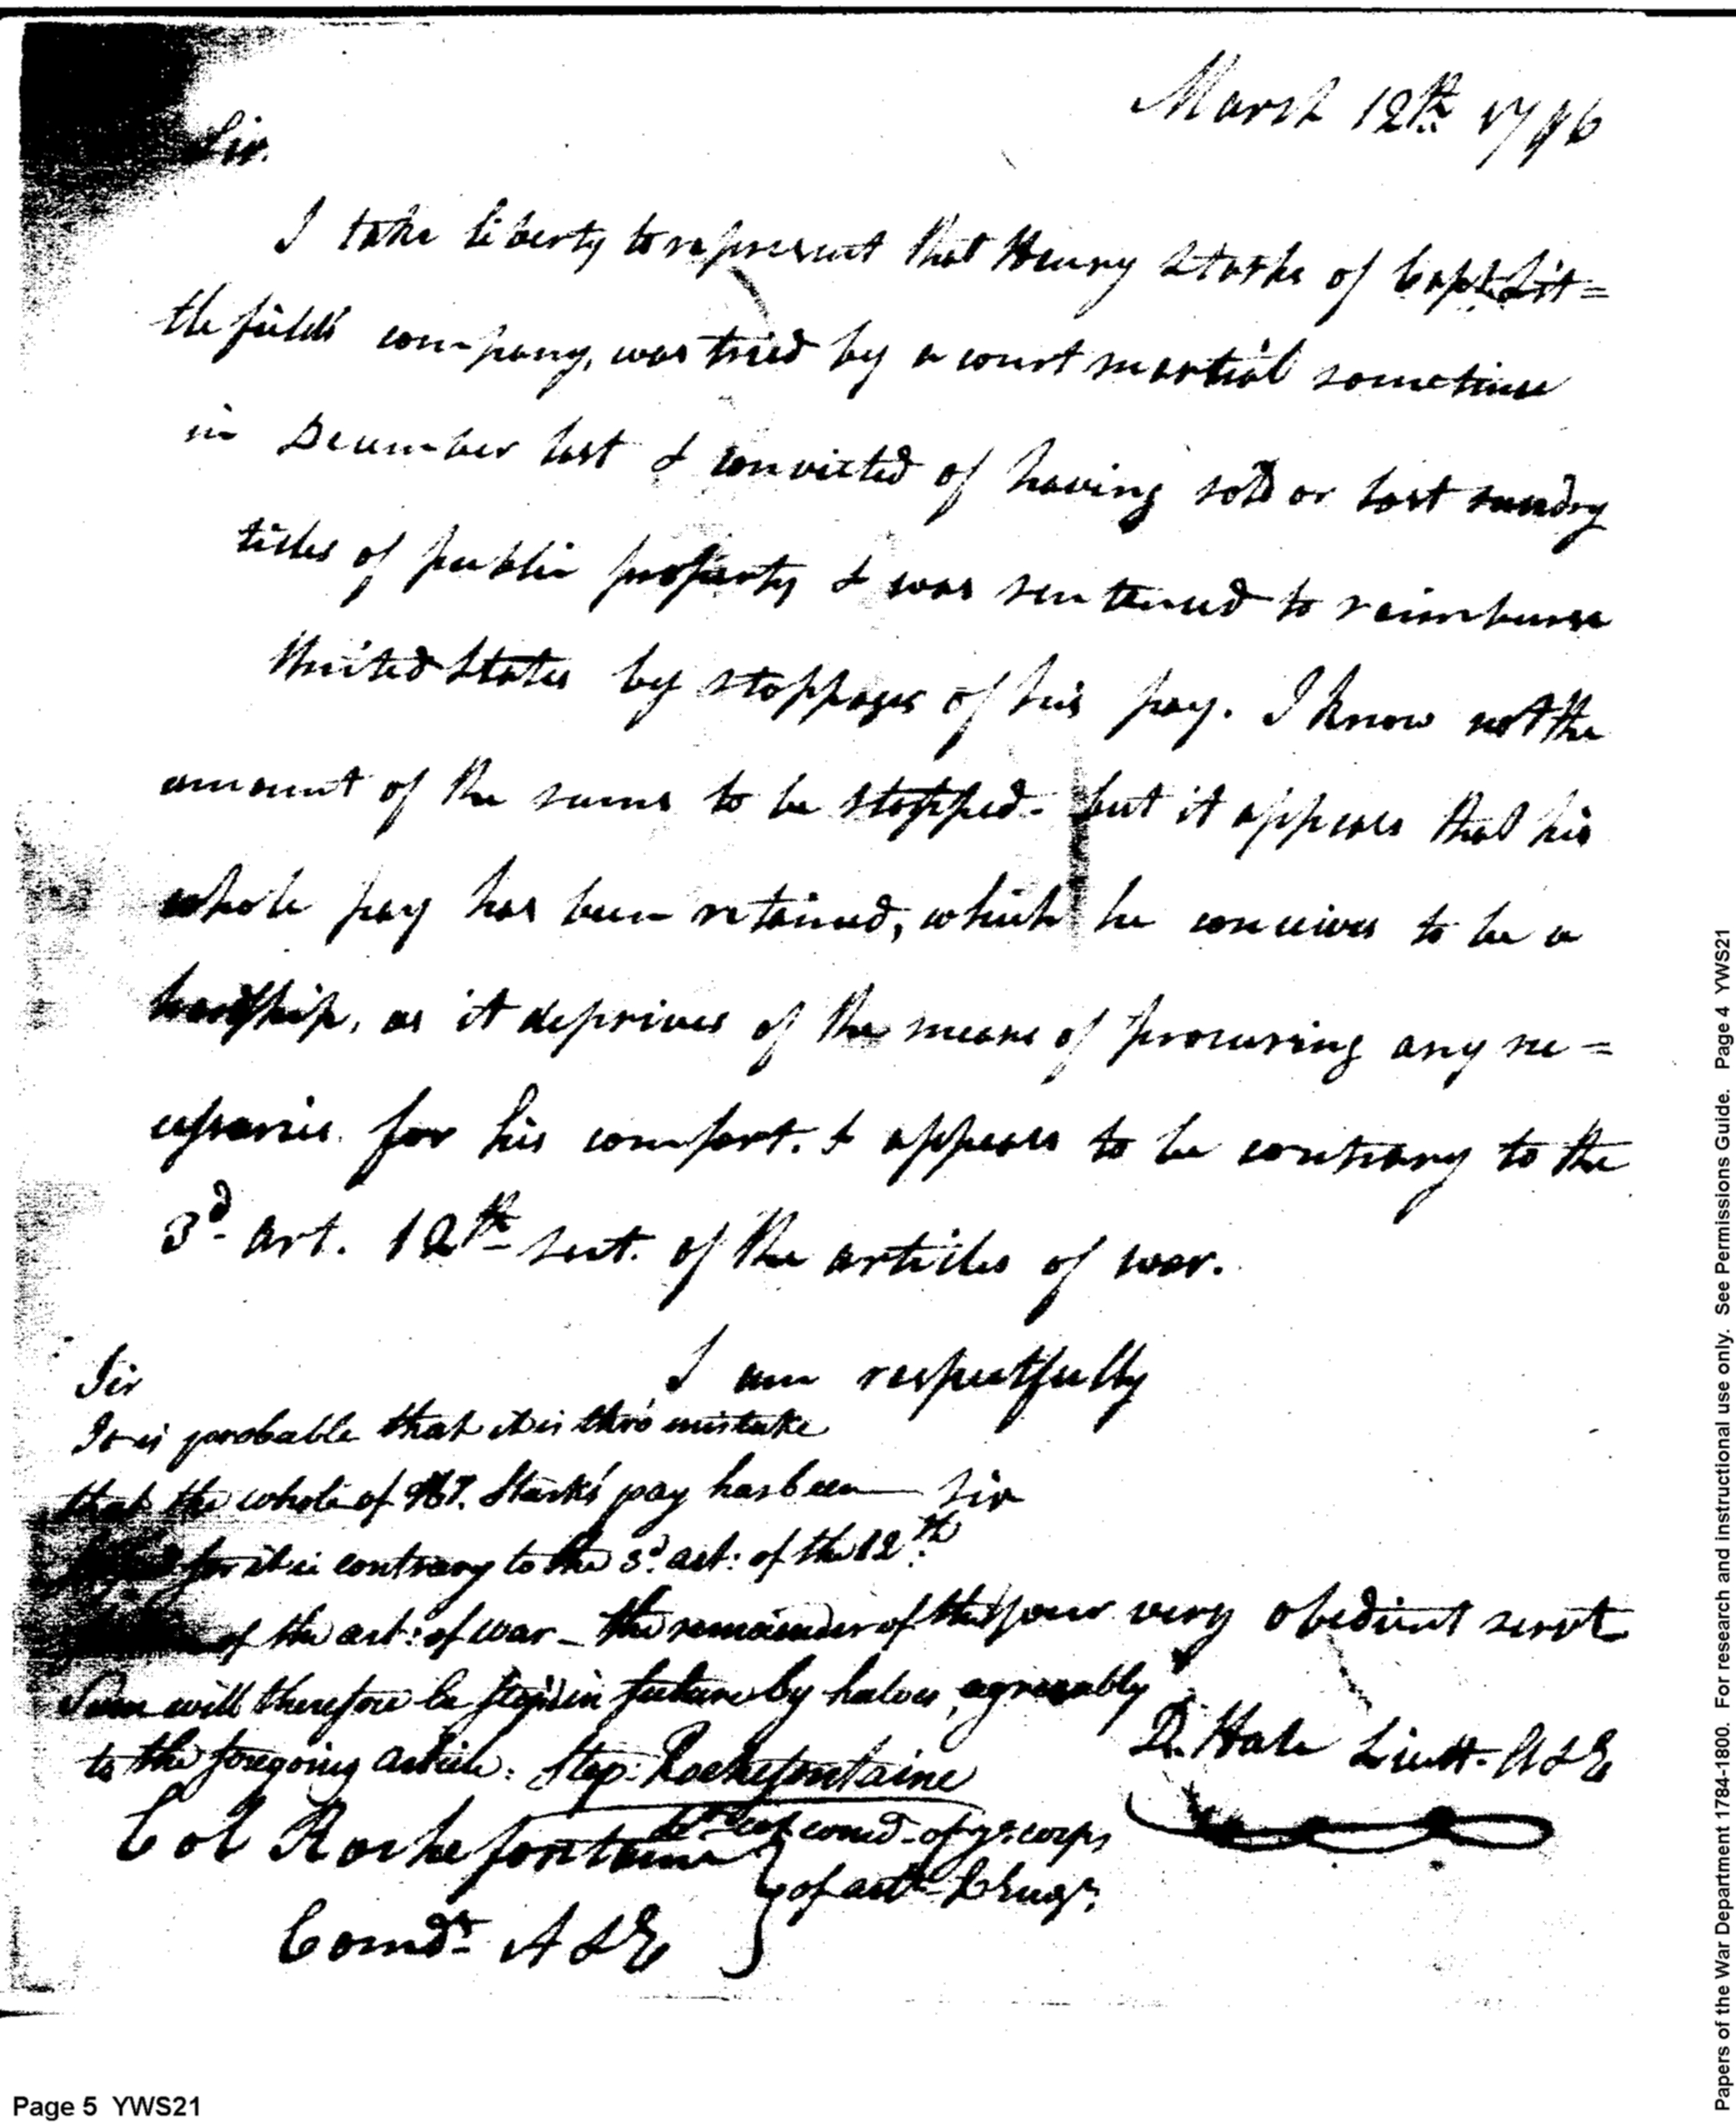 March 12th. 1796
Sir.
I take liberty to represent that Henry Starks of Capt. Lit=
tlefield's company, was tried by a court martial sometime
in December last & convicted of having sold or lost sundry
ticles of public property & was sentenced to reimburse
United States by stoppages of his pay. I know not the
amount of the sums to be stopped - but it appears that his
whole pay has been retained, which he conceives to be a
hardship, as it deprives of the means of procuring any ne=
cessaries for his comfort. & appears to be contrary to the
3d. art. 12th sect. of the articles of war.
I am respectfully
Sir
your very obedient servt
D. Hale Lieutt. A & E
Col Rochefontaine
Comdt. A & E
Sir
It is probable that it is thro' mistake
that the whole of Starks' pay has been
for it is contrary to the 3d. art: of the 12.th
of the art: of war - the remainder of the
Sum will therefore be stop'd in future by halves, agreeably
to the foregoing article. Step: Rochefontaine
Lt. Col comd. of ye. corps
of artt. & Engrs.
Papers of the War Department 1784-1800. For research and instructional use only. See Permissions Guide. Page 4 YWS21
Page 5 YWS21